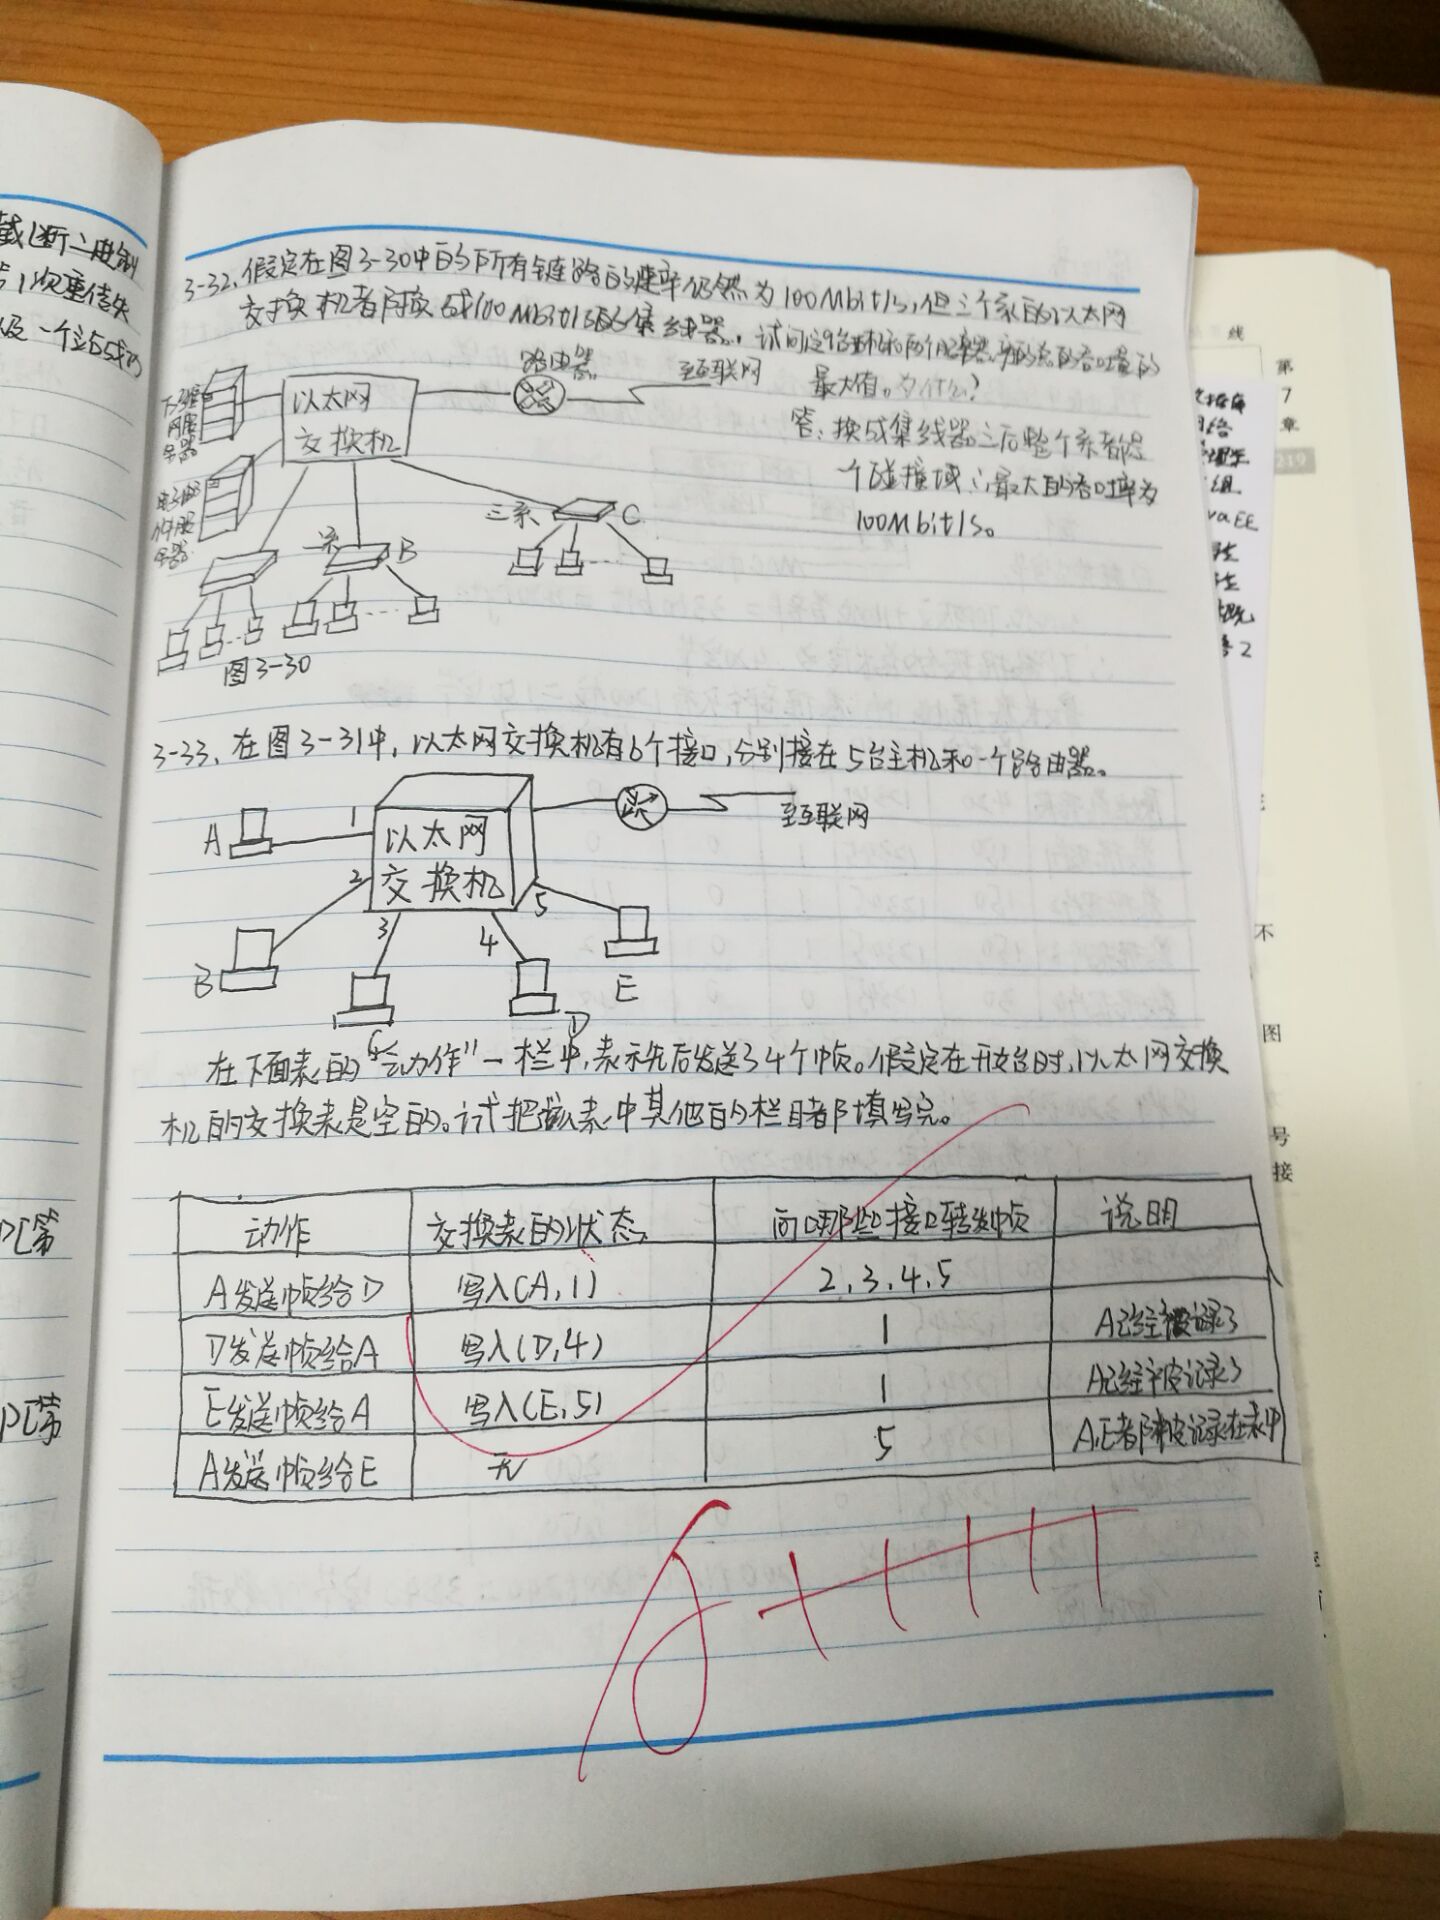 截断二进制
3-32. 假定在图3-30中的所有链路的速率仍然为100Mbit/s,但三个系的以太网
交换机都换成100Mbit/s的集线器。试问这9台主机和两个服务器产生的总的吞吐量的
最大值。为什么?
路由器
至互联网
以太网
交换机
答:换成集线器之后整个系都是
一个碰撞域∴最大的吞吐率为
100Mbit/s。
三系
C
一系
B
图3-30
3-33. 在图3-31中,以太网交换机有6个接口,分别接在5台主机和一个路由器。
A
1
以太网
交换机
至互联网
2
3
4
5
B
C
D
E
在下面表的“动作”一栏中,表示先后发送了4个帧。假定在开始时,以太网交换
机的交换表是空的。试把该表中其他的栏目都填写完。
动作 交换表的状态 向哪些接口转发帧 说明
A发送帧给D 写入(A,1) 2,3,4,5
D发送帧给A 写入(D,4) 1 A已经被记录了
E发送帧给A 写入(E,5) 1 A已经被记录了
A发送帧给E 无 5 A,E都被记录在表中
线
第
7
章
219
组
不
图
号
接